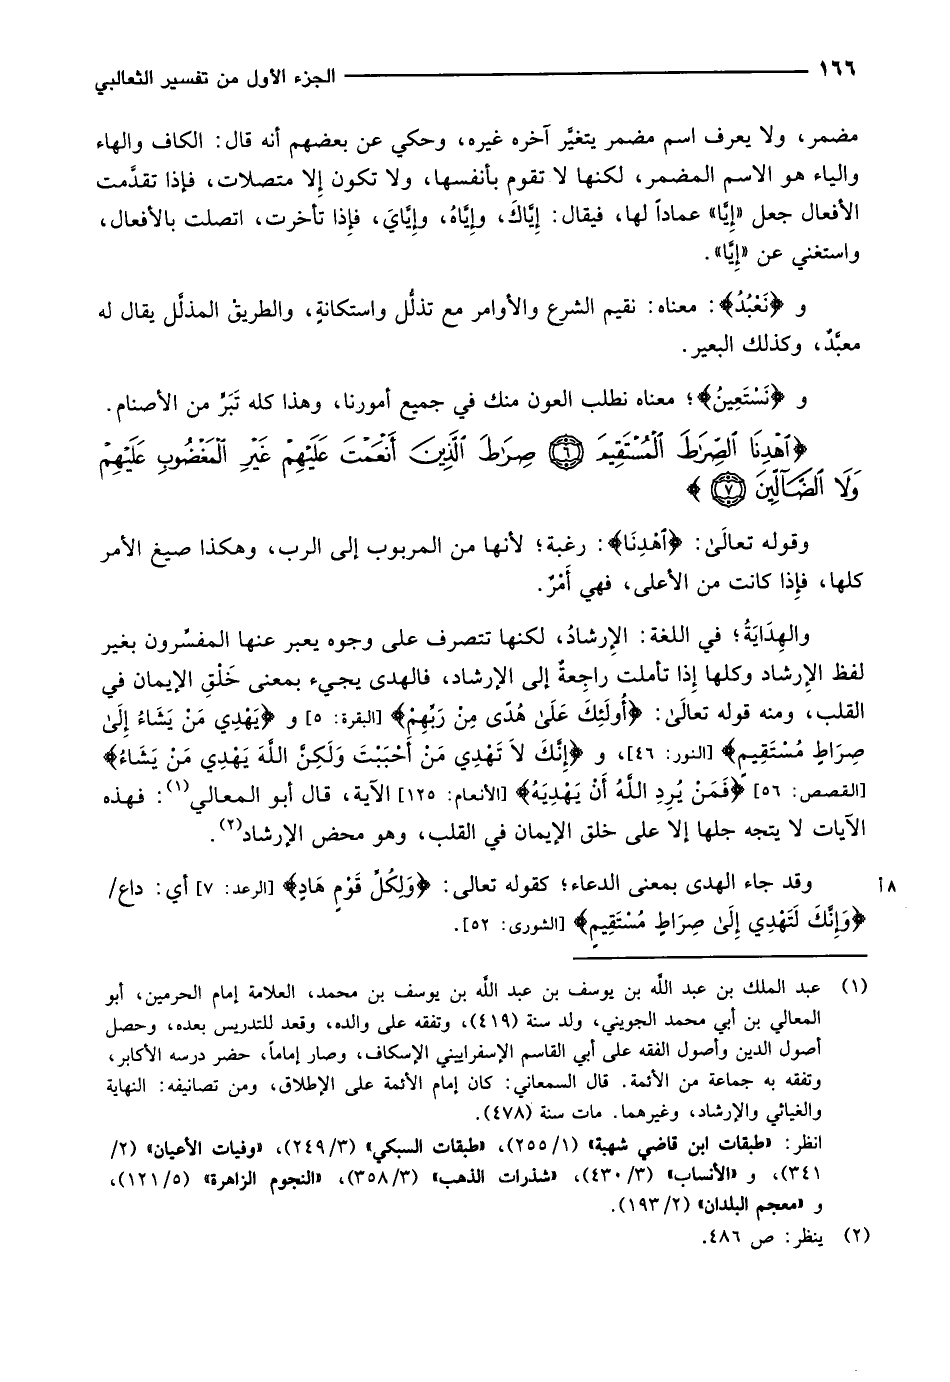 ١٦٦ الجزء الأول من تفسير الثعالبي
مضمر، ولا يعرف اسم مضمر يتغيَّر آخره غيره، وحكي عن بعضهم أنه قال: الكاف والهاء
والياء هو الاسم المضمر، لكنها لا تقوم بأنفسها، ولا تكون إلا متصلات، فإذا تقدَّمت
الأفعال جعل «إيَّا» عماداً لها، فيقال: إيَّاكَ، وإيَّاهُ، وإيَّايَ، فإذا تأخرت، اتصلت بالأفعال،
واستغني عن «إيَّا».
و ﴿نَعْبُدُ﴾: معناه: نقيم الشرع والأوامر مع تذلُّل واستكانةٍ، والطريقْ المذلَّل يقال له
معبَّدٌ، وكذلك البعير.
و ﴿نَسْتَعِينُ﴾؛ معناه نطلب العون منك في جميع أمورنا، وهذا كله تَبَرٍّ من الأصنام.
﴿ٱهْدِنَا ٱلصِّرَٰطَ ٱلْمُسْتَقِيمَ ٦ صِرَٰطَ ٱلَّذِينَ أَنْعَمْتَ عَلَيْهِمْ غَيْرِ ٱلْمَغْضُوبِ عَلَيْهِمْ
وَلَا ٱلضَّآلِّينَ ٧ ﴾
وقوله تعالَىٰ: ﴿ٱهْدِنَا﴾: رغبة؛ لأنها من المربوب إلى الرب، وهكذا صيغ الأمر
كلها، فإذا كانت من الأعلى، فهي أَمْرٌ.
والهِدَايَةُ؛ في اللغة: الإرشادُ، لكنها تتصرف على وجوه يعبر عنها المفسِّرون بغير
لفظ الإرشاد وكلها إذا تأملت راجعةٌ إلى الإرشاد، فالهدى يجيء بمعنى خَلْقِ الإيمان في
القلب، ومنه قوله تعالَىٰ: ﴿أُولَئِكَ عَلَىٰ هُدًى مِنْ رَبِّهِمْ﴾ [البقرة: ٥] و ﴿يَهْدِي مَنْ يَشَاءُ إِلَىٰ
صِرَاطٍ مُسْتَقِيمٍ﴾ [النور: ٤٦]، و ﴿إِنَّكَ لاَ تَهْدِي مَنْ أَحْبَبْتَ وَلَكِنَّ اللَّهَ يَهْدِي مَنْ يَشَاءُ﴾
[القصص: ٥٦] ﴿فَمَنْ يُرِدِ اللَّهُ أَنْ يَهْدِيَهُ﴾ [الأنعام: ١٢٥] الآية، قال أبو المعالي(١): فهذه
الآيات لا يتجه جلها إلا على خلق الإيمان في القلب، وهو محض الإرشاد(٢).
وقد جاء الهدى بمعنى الدعاء؛ كقوله تعالى: ﴿وَلِكُلِّ قَوْمٍ هَادٍ﴾ [الرعد: ٧] أي: داع/ ٨ أ
﴿وَإِنَّكَ لَتَهْدِي إِلَىٰ صِرَاطٍ مُسْتَقِيمٍ﴾ [الشورى: ٥٢].
(١) عبد الملك بن عبد اللَّه بن يوسف بن عبد اللَّه بن يوسف بن محمد، العلامة إمام الحرمين، أبو
المعالي بن أبي محمد الجويني، ولد سنة (٤١٩)، وتفقه على والده، وقعد للتدريس بعده، وحصل
أصول الدين وأصول الفقه على أبي القاسم الإسفراييني الإسكاف، وصار إماماً، حضر درسه الأكابر،
وتفقه به جماعة من الأئمة. قال السمعاني: كان إمام الأئمة على الإطلاق، ومن تصانيفه: النهاية
والغياثي والإرشاد، وغيرهما. مات سنة (٤٧٨).
انظر: «طبقات ابن قاضي شهبة» (١/ ٢٥٥)، «طبقات السبكي» (٣/ ٢٤٩)، «وفيات الأعيان» (٢/
٣٤١)، و «الأنساب» (٣/ ٤٣٠)، «شذرات الذهب» (٣/ ٣٥٨)، «النجوم الزاهرة» (٥/ ١٢١)،
و «معجم البلدان» (٢/ ١٩٣).
(٢) ينظر: ص ٤٨٦.